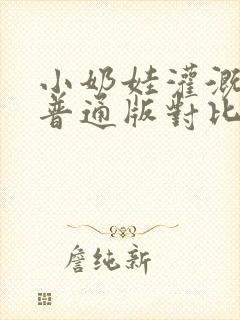 小奶娃灌溉
普通版對比
詹纯新